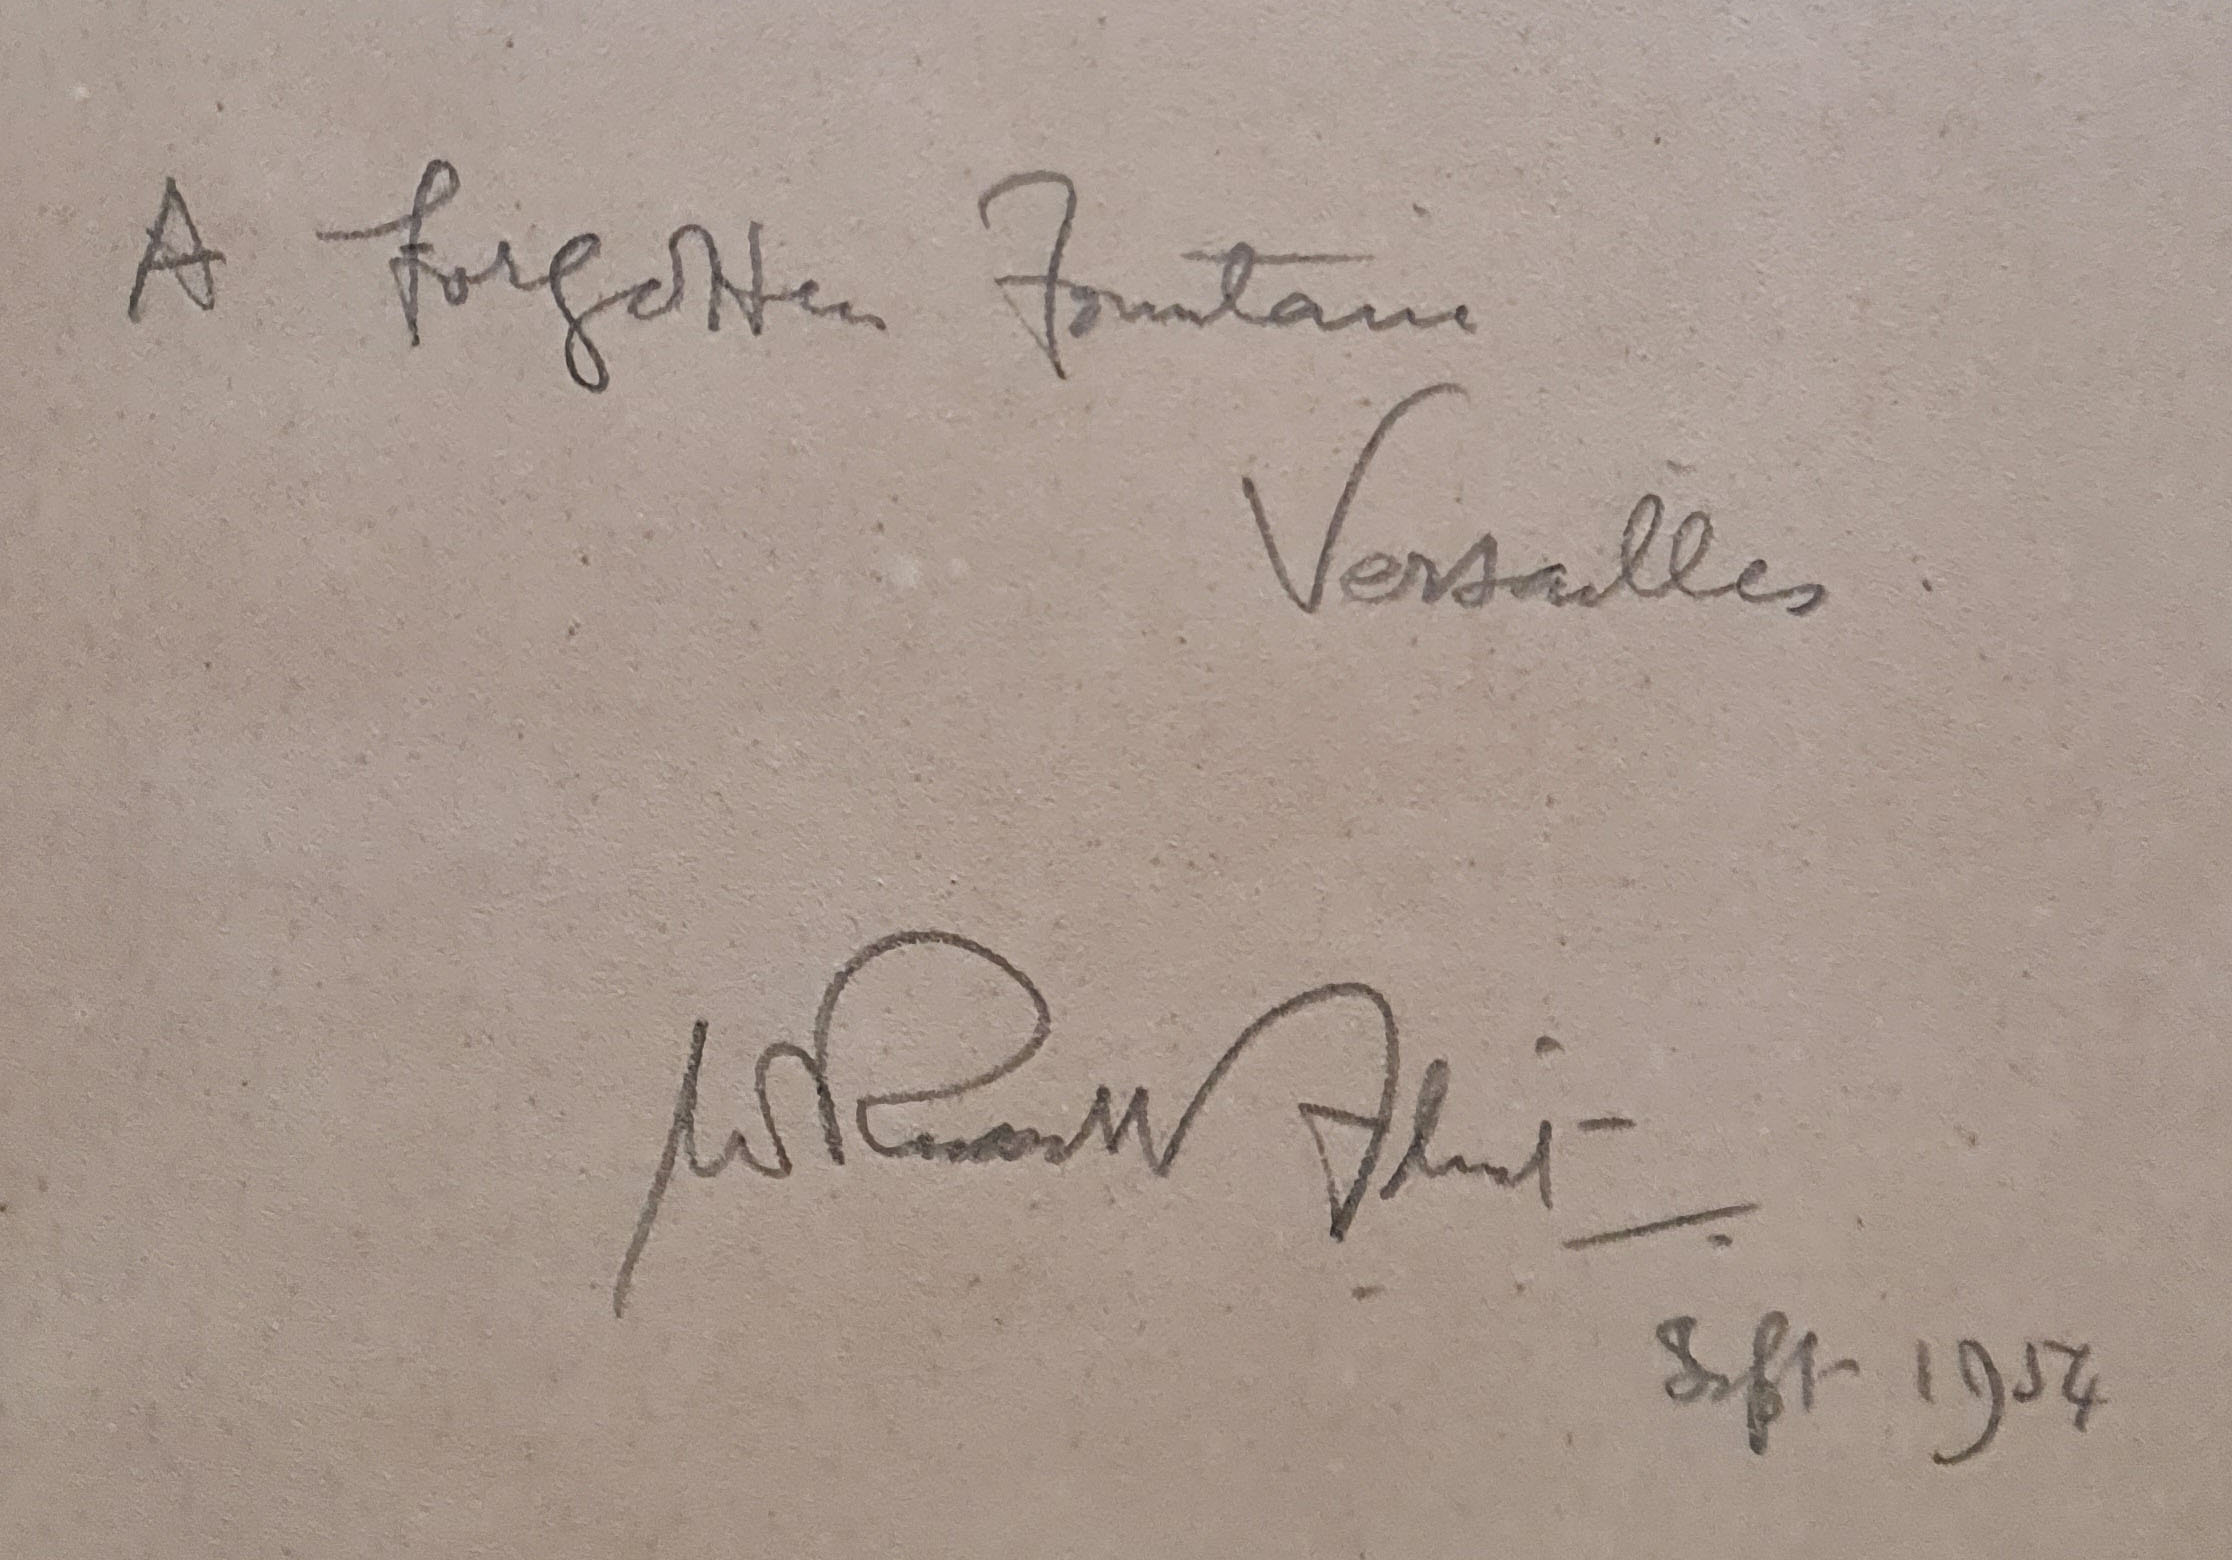 A forgotten Fountain
Versailles
W Russell Flint
Sept 1954